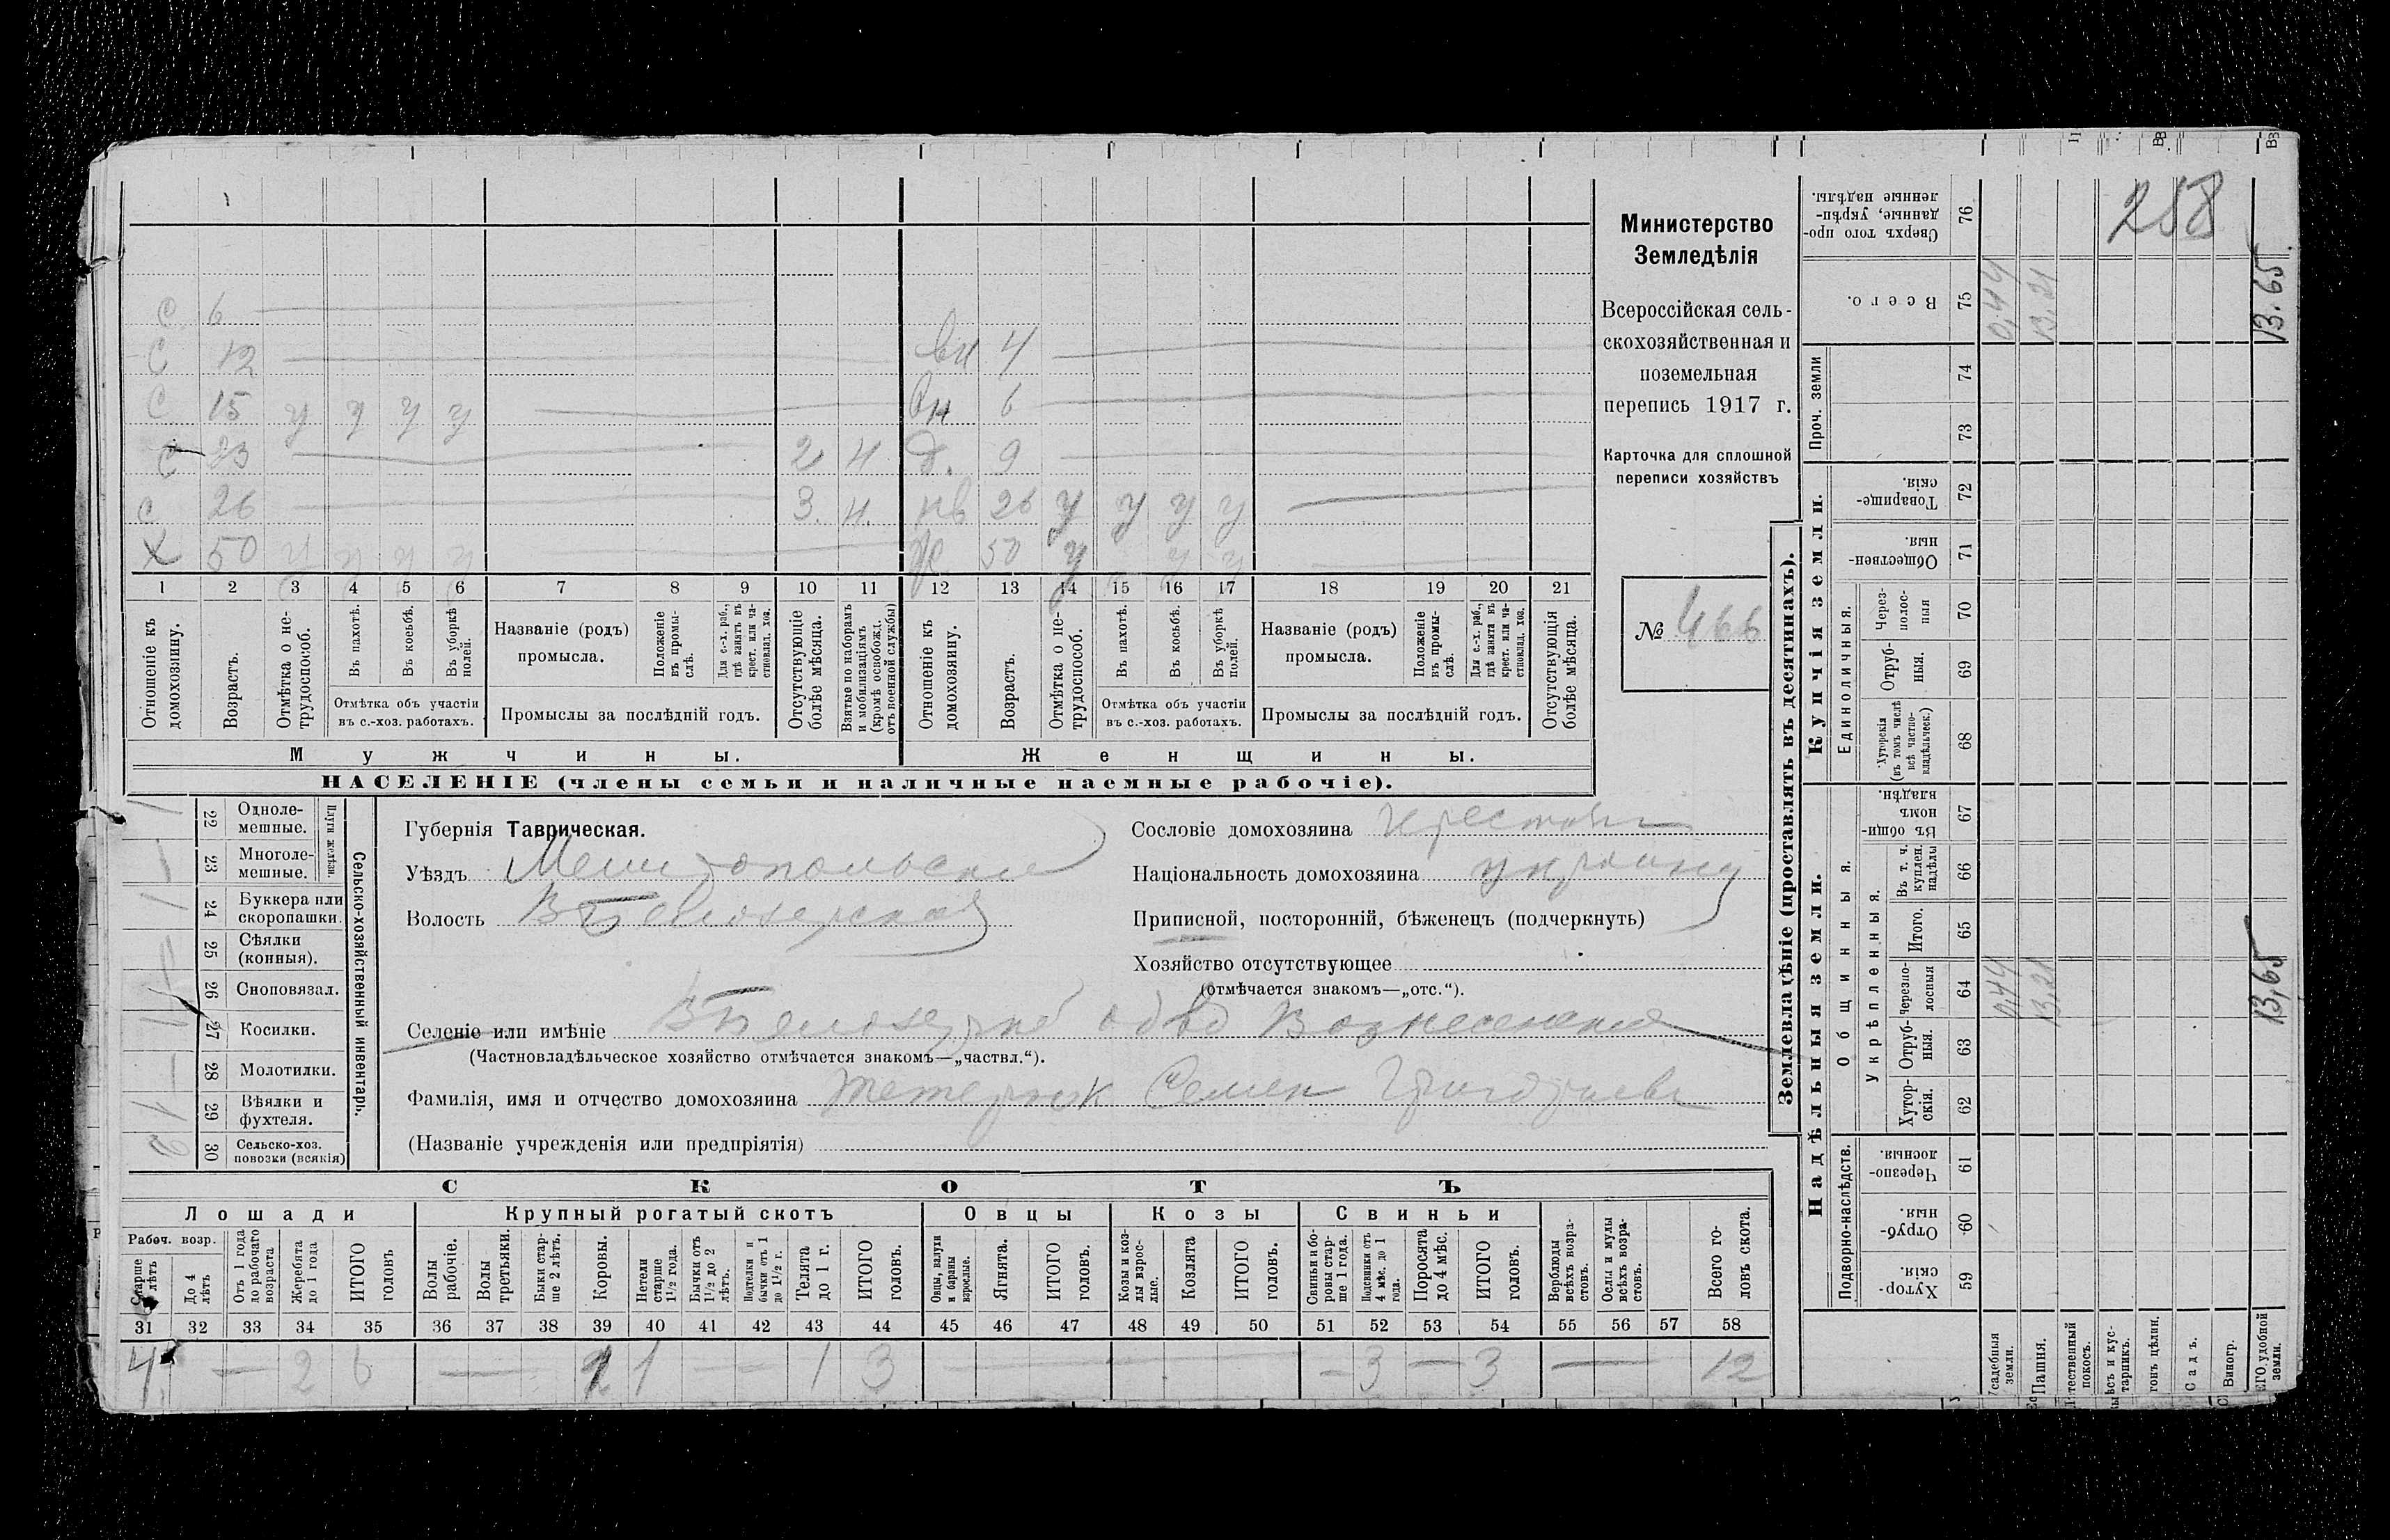 258
Министерство
Земледѣлія
Всероссійская сель-
скохозяйственная и
поземельная
перепись 1917 г.
Карточка для сплошной
переписи хозяйствъ
№ 466
с 6
с 12 вн 4
с 15 у у у у вн 6
с 23 2 ч д. 9
с 26 3. ч. нв 26 у у у у
х 50 у у у у ж 50 у у у
1 2 3 4 5 6 7 8 9 10 11 12 13 14 15 16 17 18 19 20 21
Отношеніе къ домохозяину.
Возрастъ.
Отмѣтка о не-трудоспособ.
Въ пахотѣ.
Въ косьбѣ.
Въ уборкѣ полей.
Отмѣтка объ участіи въ с.-хоз. работахъ.
Названіе (родъ) промысла.
Положеніе въ промы-слѣ.
Для с.-х. раб., гдѣ занятъ въ крест. или ча-стновлад. хоз.
Промыслы за послѣдній годъ.
Отсутствующіе болѣе мѣсяца.
Взятые по наборамъ и мобилизаціямъ (кромѣ освобожд. отъ военной службы)
Отношеніе къ домохозяину.
Возрастъ.
Отмѣтка о не-трудоспособ.
Въ пахотѣ.
Въ косьбѣ.
Въ уборкѣ полей.
Отмѣтка объ участіи въ с.-хоз. работахъ.
Названіе (родъ) промысла.
Положеніе въ промы-слѣ.
Для с.-х. раб., гдѣ занята въ крест. или ча-стновлад. хоз.
Промыслы за послѣдній годъ.
Отсутствующія болѣе мѣсяца.
Мужчины. Женщины.
НАСЕЛЕНІЕ (члены семьи и наличные наемные рабочіе).
Сельско-хозяйственный инвентарь.
Плуги желѣзн.
22 Одноле-мешные. 1
23 Многоле-мешные. 1
24 Буккера или скоропашки. 1
25 Сѣялки (конныя).
26 Сноповязал.
27 Косилки. 1
28 Молотилки. —
29 Вѣялки и фухтеля. 1
30 Сельско-хоз. повозки (всякія) 2
Губернія Таврическая.
Уѣздъ Мелитопольскій
Волость В Бѣлозерская
Сословіе домохозяина крестьян
Національность домохозяина украинц
Приписной, посторонній, бѣженецъ (подчеркнуть)
Хозяйство отсутствующее
(отмѣчается знакомъ—„отс.“).
Селеніе или имѣніе В Бѣлозерка Вознесенская
(Частновладѣльческое хозяйство отмѣчается знакомъ—„частвл.“).
Фамилія, имя и отчество домохозяина Тетерюк Семен Григорьевъ
(Названіе учрежденія или предпріятія)
СКОТЪ
Лошади Крупный рогатый скотъ Овцы Козы Свиньи
Рабоч. возр.
Старше 4 лѣтъ
До 4 лѣтъ
Отъ 1 года до рабочаго возраста
Жеребята до 1 года
ИТОГО головъ
Волы рабочіе.
Волы третьяки.
Быки стар-ше 2 лѣтъ.
Коровы.
Нетели старше 1½ года.
Бычки отъ 1½ до 2 лѣтъ.
Подтелки и бычки отъ 1 до 1½ г.
Телята до 1 г.
ИТОГО головъ.
Овцы, валухи и бараны взрослые.
Ягнята.
ИТОГО головъ.
Козы и коз-лы взрос-лые.
Козлята
ИТОГО головъ.
Свиньи и бо-ровы стар-ше 1 года.
Подсвинки отъ 4 мѣс. до 1 года.
Поросята до 4 мѣс.
ИТОГО головъ.
Верблюды всѣхъ возра-стовъ.
Ослы и мулы всѣхъ возра-стовъ.
Всего го-ловъ скота.
31 32 33 34 35 36 37 38 39 40 41 42 43 44 45 46 47 48 49 50 51 52 53 54 55 56 57 58
4 — 2 6 — 1 1 — — 1 3 — — 3 — 3 — 12
Землевладѣніе (проставлять въ десятинахъ).
Купчія земли.
Надѣльныя земли.
Проч. земли
Сверхъ того про-данные, укрѣп-ленные надѣлы. 76
Всего. 75 0,44 13,21 13.65
74
73
Товарище-скія. 72
Обществен-ныя. 71
Единоличныя.
Через-полос-ныя 70
Отруб-ныя. 69
Хуторскія (въ томъ числѣ всѣ частно-владѣльческ.) 68
Общинныя.
Въ общи-номъ владѣн. 67
Укрѣпленныя.
Въ т. ч. куплен. надѣлы 66
Итого. 65
Черезпо-лосныя 64 0,44 13,21 13,65
Отруб-ныя. 63
Хутор-скія. 62
Подворно-наслѣдств.
Черезпо-лосныя. 61
Отруб-ныя. 60
Хутор-скія. 59
Усадебныя земли.
Пашня.
Естественный покосъ.
Садъ.
Виногр.
удобной земли.